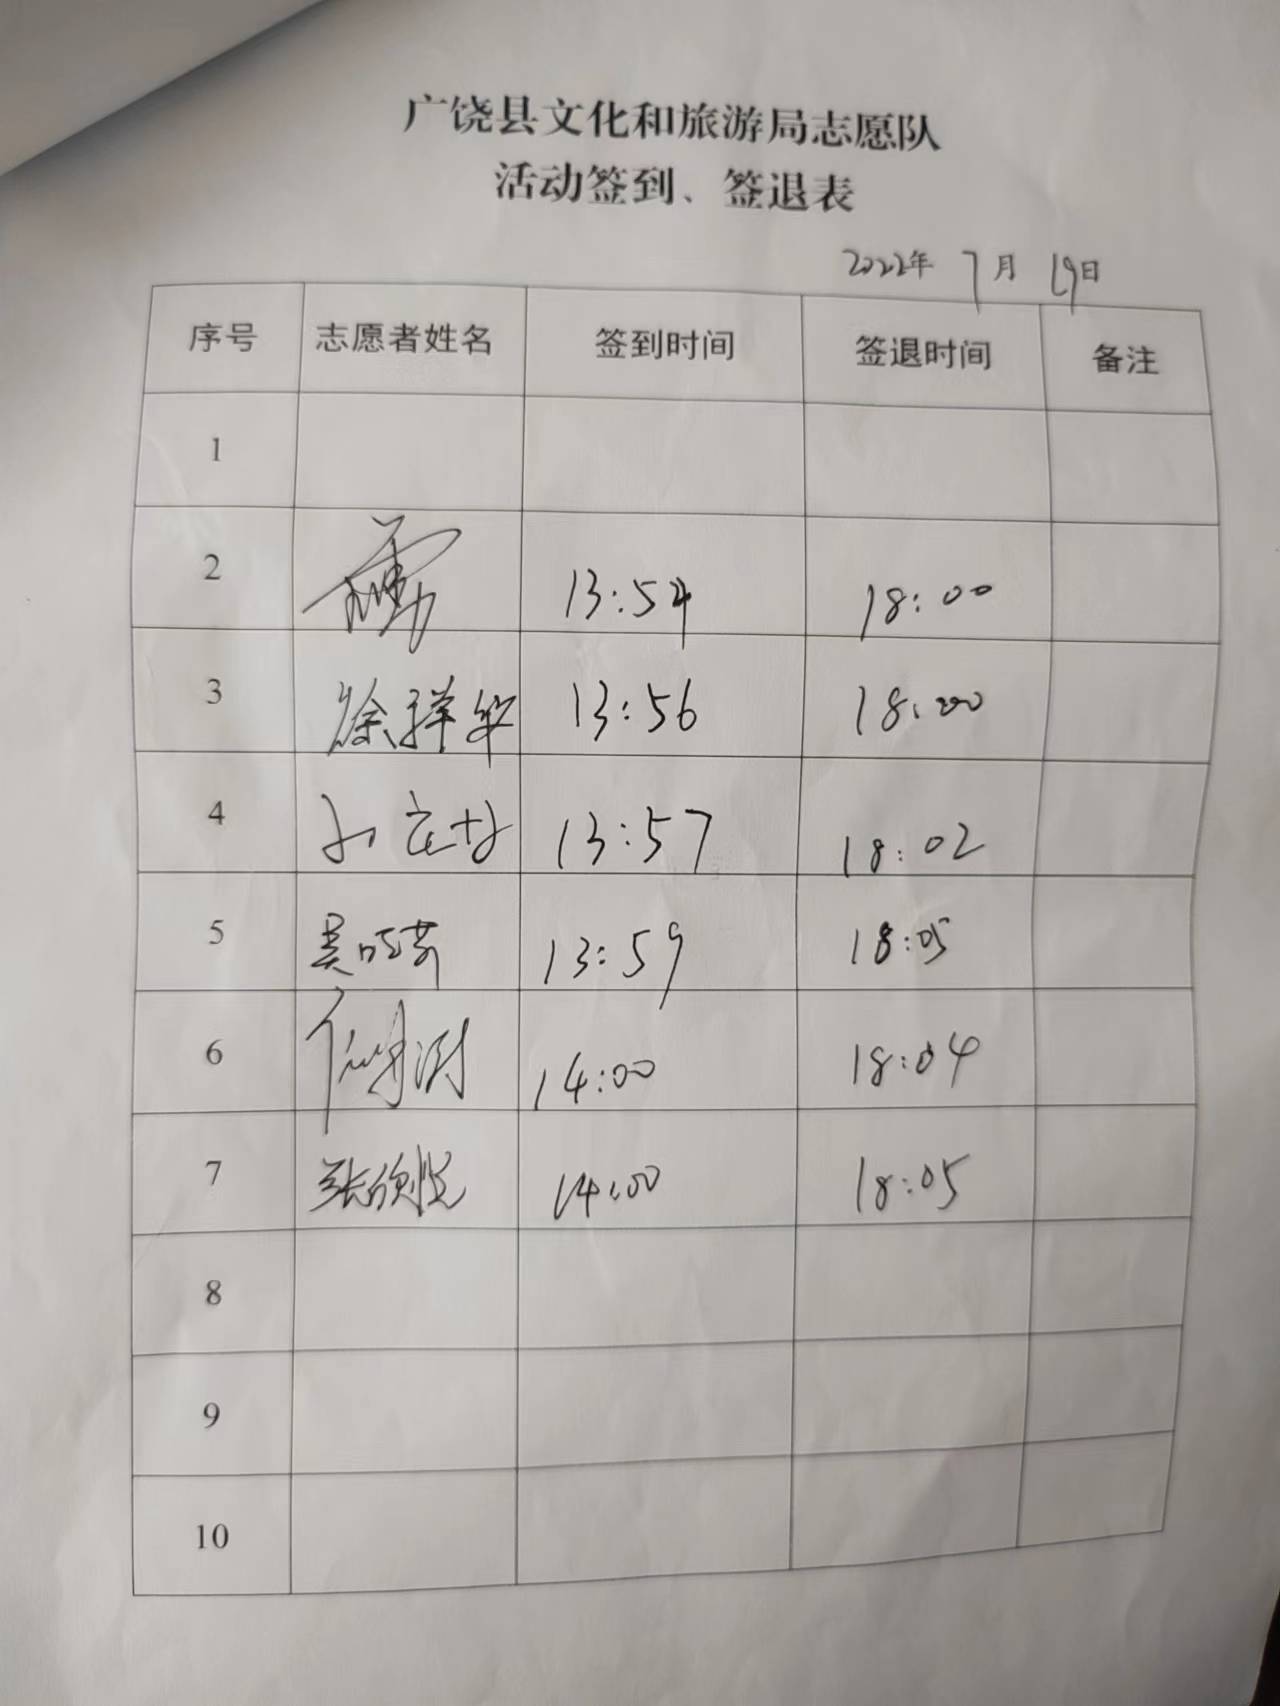 广饶县文化和旅游局志愿队
活动签到、签退表
2022年 7月 19日
序号 志愿者姓名 签到时间 签退时间 备注
1
2 13:54 18:00
3 徐祥华 13:56 18:00
4 13:57 18:02
5 吴晓芳 13:59 18:05
6 14:00 18:04
7 张欣悦 14:00 18:05
8
9
10